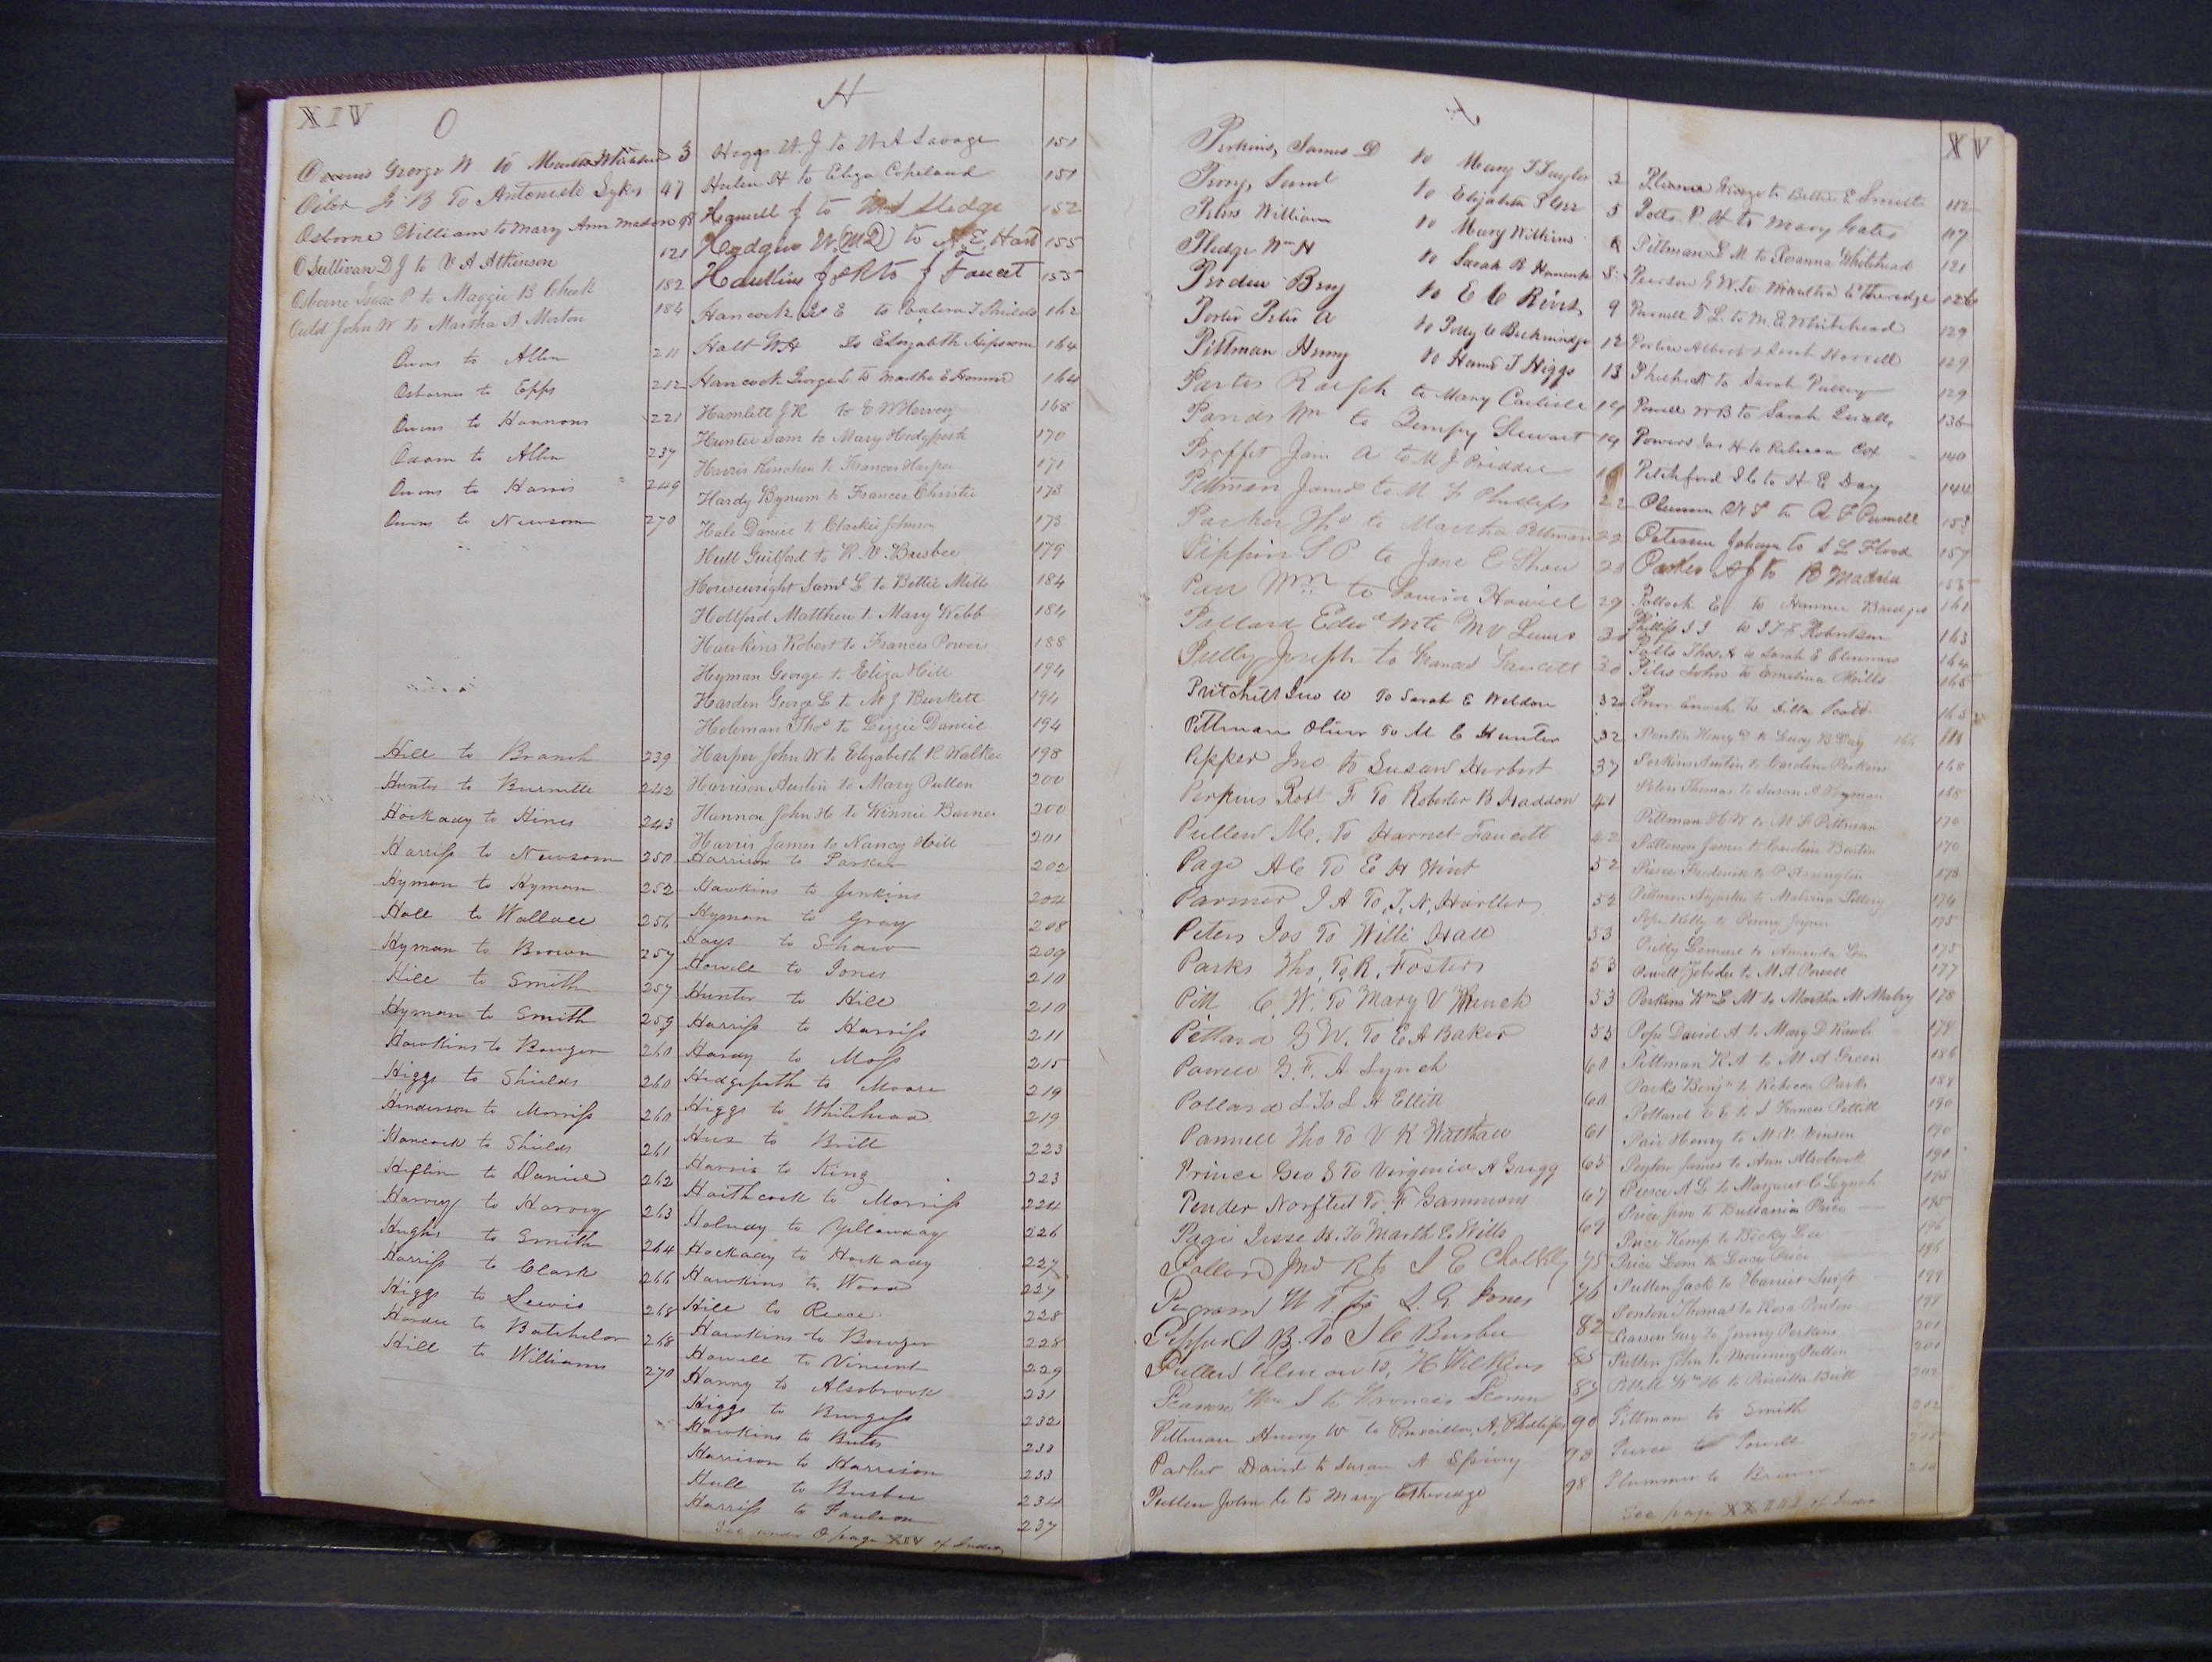 XIV
O
Owens George W to Martha Whitehead 3
Oiler G B To Antoniette Sykes 47
Osborne William to Mary Ann Madson 98
O Sullivan D J to V A Atkinson 121
Osborne Isaac P to Maggie B Cheek 182
Auld John W to Martha A Morton 184
Owens to Allen 211
Osbornes to Epps 212
Owens to Hannons 221
Odom to Allen 237
Owens to Harris 249
Owens to Newsom 270
Hill to Branch 239
Hunter to Burnette 242
Hockady to Hines 243
Harriss to Newsom 250
Hyman to Hyman 252
Hall to Wallace 256
Hyman to Brown 257
Hill to Smith 257
Hyman to Smith 259
Hawkins to Bowzer 260
Higgs to Shields 260
Henderson to Morriss 260
Hancock to Shields 261
Heflin to Daniel 262
Harvey to Harvey 263
Hughs to Smith 264
Harriss to Clark 266
Higgs to Lewis 268
Hardee to Batchelor 268
Hill to Williams 270
H
Higgs W. J to W A Savage 151
Hulen H to Eliza Copeland 151
J to M A Sledge 152
Hodges W. (M D) to A. E. Hart 155
J & R to J Faucet 155
Hancock E to Shields 162
Halt W H to Elizabeth Hipsome 164
Hancock George L to Martha E 164
Hamlett J R to E W Hervey 168
Hunter Sam to Mary Hedgpeth 170
Harris Kinchen to Frances Harper 171
Hardy Bynum to Frances Christie 173
Hale Daniel to Clarkie Johnson 173
Hull Guilford to R. V. Busbee 179
Housewright Saml L to Bettie Mills 184
Hollford Matthew to Mary Webb 184
Hawkins Robert to Frances Power 188
Hyman George to Eliza Hill 194
Harden George L to M J Burkett 194
Holeman Thos to Lizzie Daniel 194
Harper John W to Elizabeth R Walker 198
Harrison Austin to Mary Pullen 200
Hannon John H to Winnie Barnes 200
Harris James to Nancy Hill 201
Harrison to Parker 202
Hawkins to Jenkins 204
Hyman to Gray 208
Hays to Shaw 209
Howell to Jones 210
Hunter to Hill 210
Harriss to Harriss 211
Hardy to Moss 215
Hedgepeth to Moore 219
Higgs to Whitehead 219
Hux to Britt 223
Harris to King 223
Haithcock to Morriss 224
Holiday to Yellowday 226
Hockady to Hockady 227
Hawkins to Wood 227
Hill to Reece 228
Hawkins to Bowzer 228
Howell to Vincent 229
Hanny to Alsobrook 231
Higgs to Burgess 232
Hawkins to Butts 233
Harrison to Harrison 233
Hull to Busbee 234
Harriss to Faulcon 237
See under O page XIV of Index
XV
Perkins, James D to Mary T Taylor 2
Perry, Saml to Elizabeth 5
Peters William to Mary Wilkins
Pledge Wm H to Sarah R Hancock 8
Proden Benj to E C Rives 9
Porter Peter A to Polly C Beckwindge 12
Pittman Henry to Hannah T Higgs 13
Parter Ralph to Mary Carlisle 14
Parids Wm to Zempy Stewart 14
Proffet Jam A to M J Pridder
Pittman James to M. F Phillips 22
Parker Thos to Martha Pittman 22
Pippin S P to Jane E Shaw 23
Parr Wm to Louisa Howill 29
Pollard Edwd M to M V Lewis 30
Pully Joseph to Frances Faucett 30
Pritchett Jno W To Sarah E Weldon 32
Pittman Oliver To M C Hunter 32
Pepper Jno to Susan Herbert 37
Perkins Robt F To Roberter B Haddon 41
Pullen Mc. To Harriet Faucett 42
Page A C To E H Wint 52
Parmer J A To J. N. Harller 52
Peters Jos To Willi Hall 53
Parks Tho. To R. Foster 53
Pitt C. W. To Mary V 53
Pittard G W. To E A Baker 55
Powell G. F. A Lynch 60
Pollard L To L A Ellitt 60
Pannell Tho To V R Walthall 61
Prince Geo S To Virginia A Grigg 65
Pender Norfleet To F Gammons 67
Page Jesse H. To Marth E. Wills 69
Pollard Jno R to S E 75
Pegram W T. to L. G. Jones 76
Pepper J B. To J C Busbee 82
Pullen To H Wilkins 85
Pearson Wm S to Frances 87
Pittman Henry W to Priscilla A. Phillips 90
Parker David to Susan A Spivey 93
Pullen John C to Mary Etheredge 98
George to Bettie E Smith 112
Potts P. H to Mary Gates 117
Pittman S M to Rosanna Whitehead 121
Pearson G W. to Martha Etheredge 126
Purnell T L. to M. E. Whitehead 129
Portis Albert to Sarah Harrell 129
to Sarah Pulley 129
Powell W B to Sarah 136
Powers Jas H to Rebecca Cox 140
Pitchford S C to H E Day 144
Plummer W T to A F Purnell 153
Peterson Johan to S L Flood 157
Parker A J to B Madrea
Pollock E to Hannie Bridges 161
Phillips J J to J T F Robertson 163
Potts Thos H to Sarah E Clemmons 164
Piles John to Emelina Mills 165
Prior Enoch to Silla Scott 165
Penton Henry D to Lucy B Day 166
Perkins Austin to Caroline Perkins 168
Peters Thomas to Susan A Hyman 168
Pittman H W to M F Pittman 170
Patterson James to Caroline Burtin 170
Pierce Frederick to P Arrington 173
Pittman Augustus to Malvina Pittery 174
Pope Kelly to Penny Joyner 175
Pully Samuel to Amanda Lee 175
Powell Zebedee to M A Powell 177
Perkins Wm L M to Martha M Maby 178
Pope David A to Mary D Rawls 178
Pittman R A to M A Green 186
Parks Benj to Rebecca Parks 188
Pollard E E to S Frances Pettitt 190
Pair Henry to M V Vinson 190
Peyton James to Ann Alsobrook 191
Pierce A L to Margaret C Lynch 195
Price Jim to Brittania Price 195
Price Kemp to Becky Lee 196
Price Lem to Luce Price 196
Pullen Jack to Harriet Swift 199
Penton Thomas to Rosa Penton 199
Pearson Guy to Jenny Perkins 201
Pullen John to Mourning Pullen 201
Pettitt Wm H to Priscilla Britt 202
Pittman to Smith 202
Pierce to Powell
Plummer to Brown 210
See page XXIII of Index